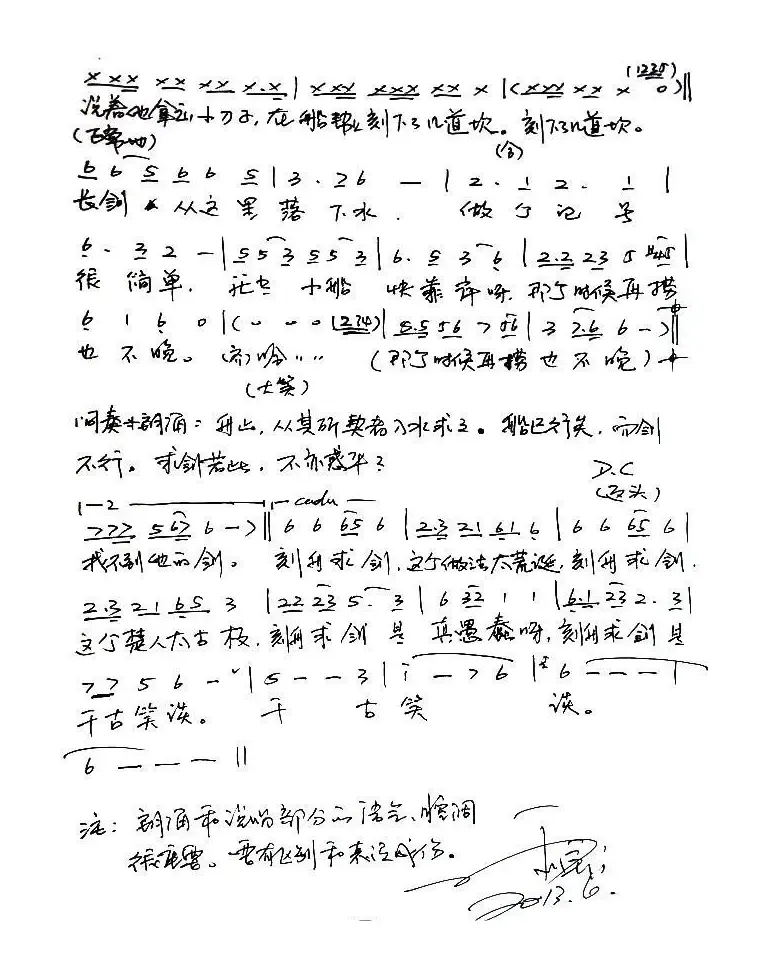 x x x x x x x x . x | x x x x x x x x x | ( x x x x x x 0 ) ‖ (1235)
说着他拿过小刀子,在船帮上刻下了几道坎。刻下了几道坎。
(白) (合)
6 6 5 6 6 5 | 3 . 2 6 — | 2 . 1 2 . 1 |
长剑 从这里落下水. 做个记号
6 . 3 2 — | 5 5 3 5 5 3 | 6 . 5 3 6 | 2.2 2 3 5
很简单. 小船快靠岸呀,那个时候再捞
6 1 6 0 | ( 0 0 0 1234 ) | 5.5 5 6 7 5 6 | 3 7.6 6 — ) ‖
也不晚。 哈〃〃 (那个时候再捞也不晚)
(大笑)
间奏+朗诵:舟止,从其所契者入水求之。船已行矣,而剑
不行。求剑若此,不亦惑乎?
D.C
(至头)
1—2
7 7 7 5 6 7 6 — ) ‖ 6 6 6 5 6 | 2.3 2 1 6 1 6 | 6 6 6 5 6 |
找不到他的剑。 刻舟求剑,这个做法太荒诞,刻舟求剑.
2.3 2 1 6 5 3 | 2 2 2 3 5 . 3 | 6 3 2 1 1 | 6.1 2 3 2 . 3 |
这个楚人太古板,刻舟求剑是真愚蠢呀,刻舟求剑是
7 7 5 6 — ˇ | 5 — — 3 | i — 7 6 | 6 — — — |
千古笑谈。 千古笑谈。
6 — — — ‖
注:朗诵和说唱部分的语气、腔调
很重要。要有区别和表演成份。
2013.6.